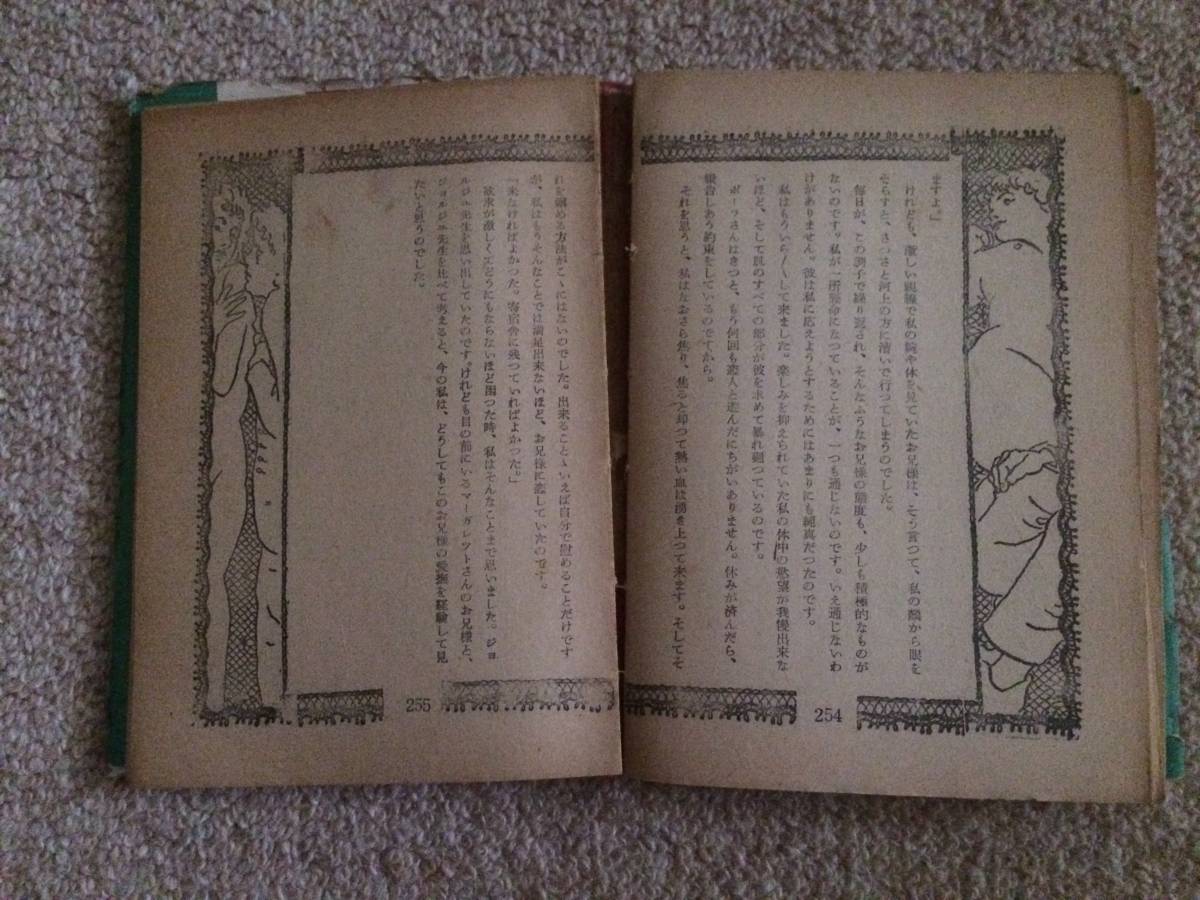 ますよ。」
けれども、激しい眼瞳で私の腕や体を見ていたお兄様は、そう言つて、私の顔から眼を
そらすと、さつさと河上の方に漕いで行つてしまうのでした。
毎日が、この調子で繰り返され、そんなふうなお兄様の態度も、少しも積極的なものが
ないのです。私が一所懸命になつていることが、一つも通じないのです。いえ通じないわ
けがありません。彼は私に応えようとするためにはあまりにも純真だつたのです。
私はもういら〱して来ました。楽しみを抑えられていた私の体中の慾望が我慢出来な
いほど、そして肌のすべての部分が彼を求めて暴れ廻つているのです。
ポーラさんはきつと、もう何回も恋人と遊んだにちがいありません。休みが済んだら、
報告しあう約束をしているのですから。
それを思うと、私はなおさら焦り、焦ると却つて熱い血は湧き上つて来ます。そしてそ
254
れを鎮める方法がこゝにはないのでした。出来ることゝいえば自分で慰めることだけです
が、私はもうそんなことでは満足出来ないほど、お兄様に恋していたのです。
「来なければよかつた。寄宿舎に残つていればよかつた。」
欲求が激しくてどうにもならないほど困つた時、私はそんなことまで思いました。ジョ
ルジュ先生を思い出していたのです。けれども目の前にいるマーガレットさんのお兄様と、
ジョルジュ先生を比べて考えると、今の私は、どうしてもこのお兄様の愛撫を経験して見
たいと思うのでした。
255